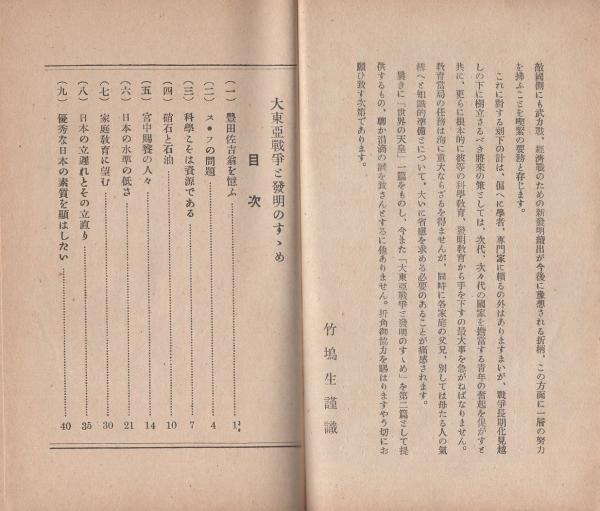 敵國側にも武力戰、經濟戰のための新發明續出が今後に豫想される折柄、この方面に一層の努力
を拂ふことを喫緊の要務と存じます。
これに對する刻下の計は、偏へに學者、專門家に頼るの外はありますまいが、戰爭長期化見越
しの下に樹立さるべき將來の策としては、次代、次々代の國家を擔當する青年の奮起を促がすと
共に、更らに根本的に彼等の科學教育、發明教育から手を下すの最大事を急がねばなりません。
教育當局の任務は洵に重大ならざるを得ませんが、同時に各家庭の父兄、別しては母たる人の氣
構へと知識的準備とについて、大いに省慮を求める必要のあることが痛感されます。
曩きに「世界の天皇」一篇をものし、今また「大東亞戰爭と發明のすゝめ」を第二篇として提
供するもの、聊か涓滴の誠を致さんとするに他ありません。折角御協力を賜はりますやう切にお
願ひ致す次第であります。
竹塢生謹識
大東亞戰爭と發明のすゝめ
目次
(一) 豊田佐吉翁を憶ふ 1
(二) ス・フの問題 4
(三) 科學こそは資源である 7
(四) 硝石と石油 10
(五) 宮中賜餐の人々 14
(六) 日本の水準の低さ 21
(七) 家庭教育に望む 30
(八) 日本の立遲れとその立直り 35
(九) 優秀な日本の素質を顯はしたい 40